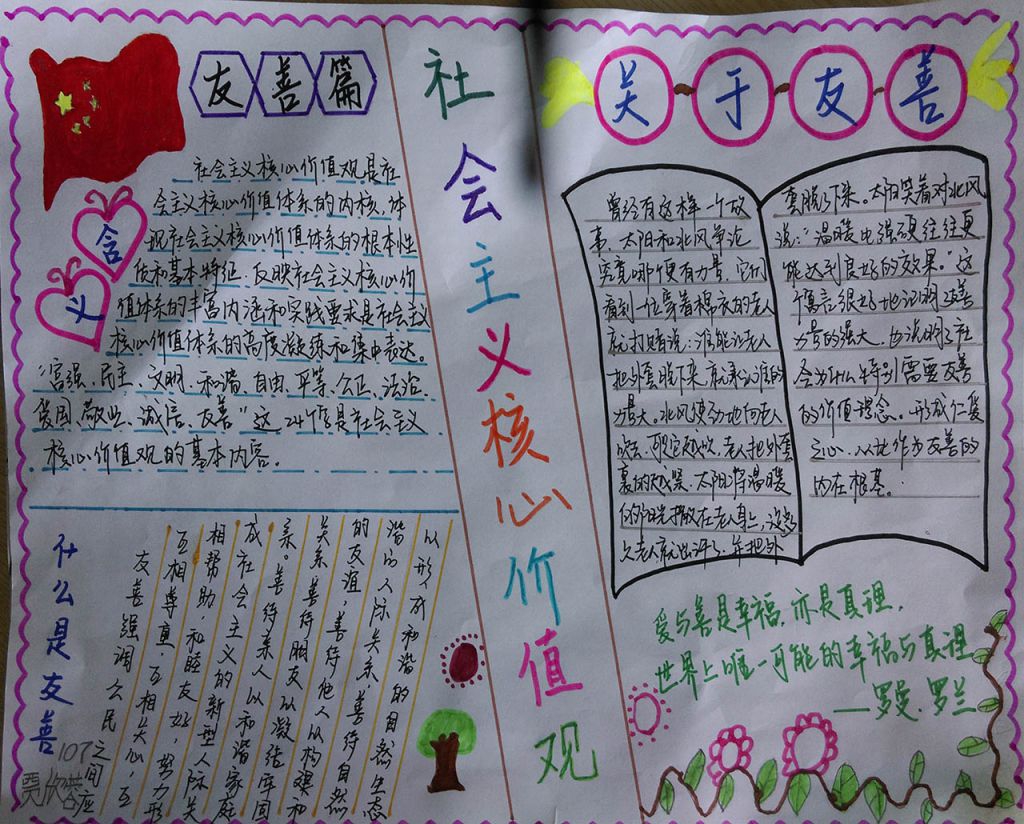 友善篇
含义
社会主义核心价值观是社
会主义核心价值体系的内核,体
现社会主义核心价值体系的根本性
质和基本特征,反映社会主义核心价
值体系的丰富内涵和实践要求是社会主义
核心价值体系的高度凝练和集中表达。
“富强、民主、文明、和谐、自由、平等、公正、法治、
爱国、敬业、诚信、友善”这24个字是社会主义
核心价值观的基本内容。
什么是友善
友善强调公民之间应
互相尊重、互相关心,互
相帮助,和睦友好,努力形
成社会主义的新型人际关
系。善待亲人以和谐家庭
关系,善待朋友以凝结牢固
的友谊,善待他人以构建和
谐的人际关系,善待自然
以形成和谐的自然生态
107
社会主义核心价值观
关于友善
曾经有这样一个故
事,太阳和北风争论
究竟哪个更有力量,它们
看到一位穿着棉衣的老人
就打赌说:谁能让老人
把外套脱下来,就承认谁的
力量大。北风使劲地向老人
吹去,老人把外套
裹的越紧,太阳将温暖
的阳光撒在老人身上,没多
久老人就出汗了,并把外
套脱了下来。太阳笑着对北风
说:“温暖比强硬往往更
能达到良好的效果。”这
个寓言很好地说明友善
力量的强大,也说明了社
会为什么特别需要友善
的价值理念。形成仁爱
之心,以此作为友善的
内在根基。
爱与善是幸福,亦是真理,
世界上唯一可能的幸福与真理
——罗曼·罗兰